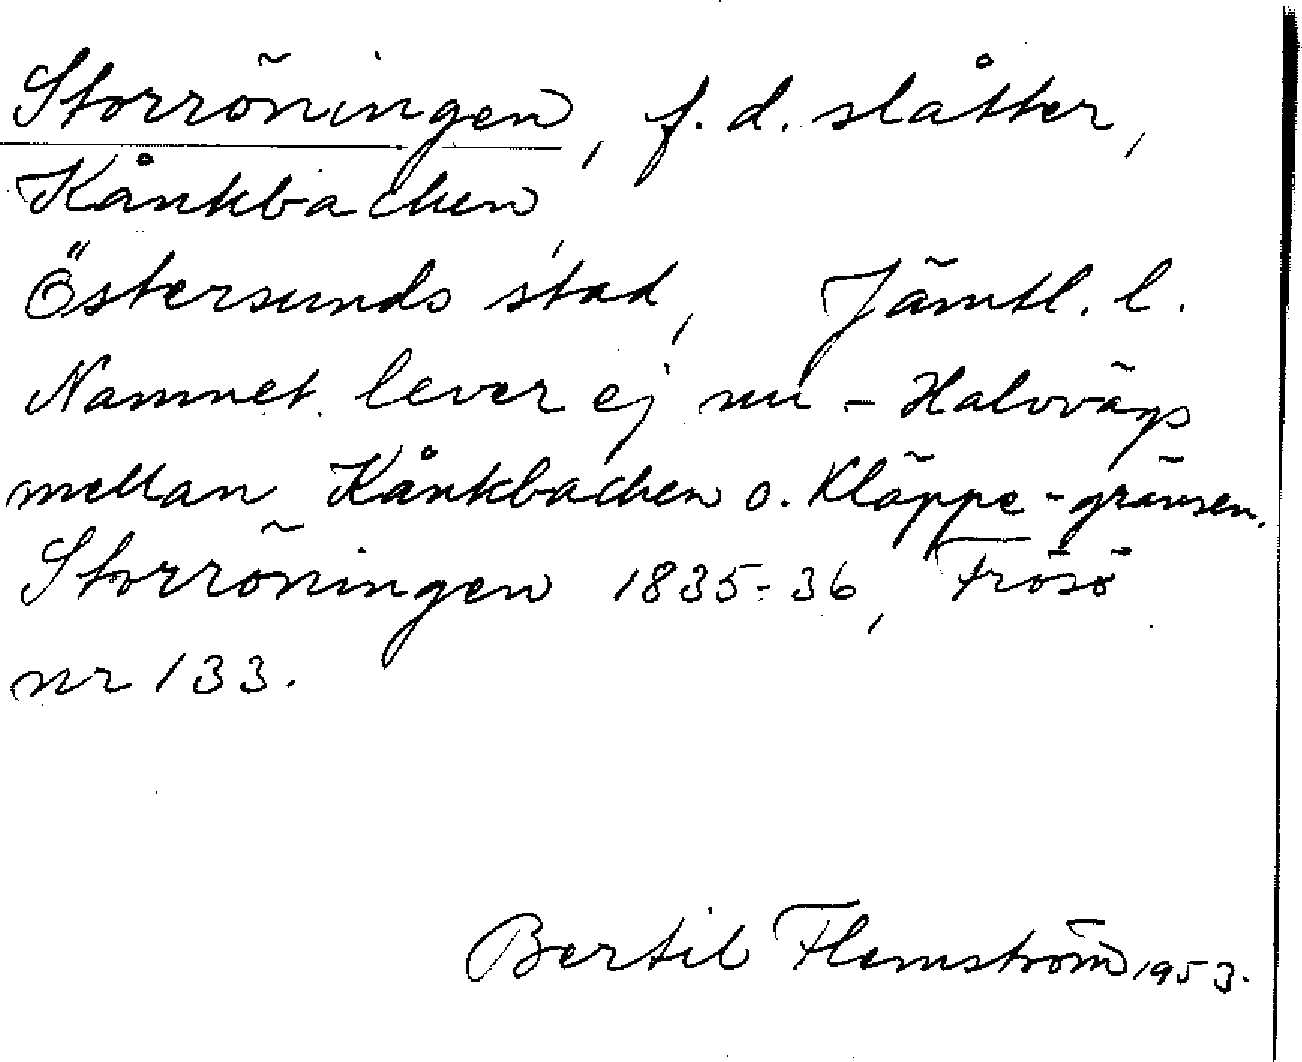 Storröningen, f. d. slåtter,
Kånkbacken,
Östersunds stad, Jämtl. l.
Namnet lever ej nu – Halvvägs
mellan Kånkbacken o. Kläppe-gränsen.
Storröningen 1835-36, Frösö
nr 133.
Bertil Flemström 1953.